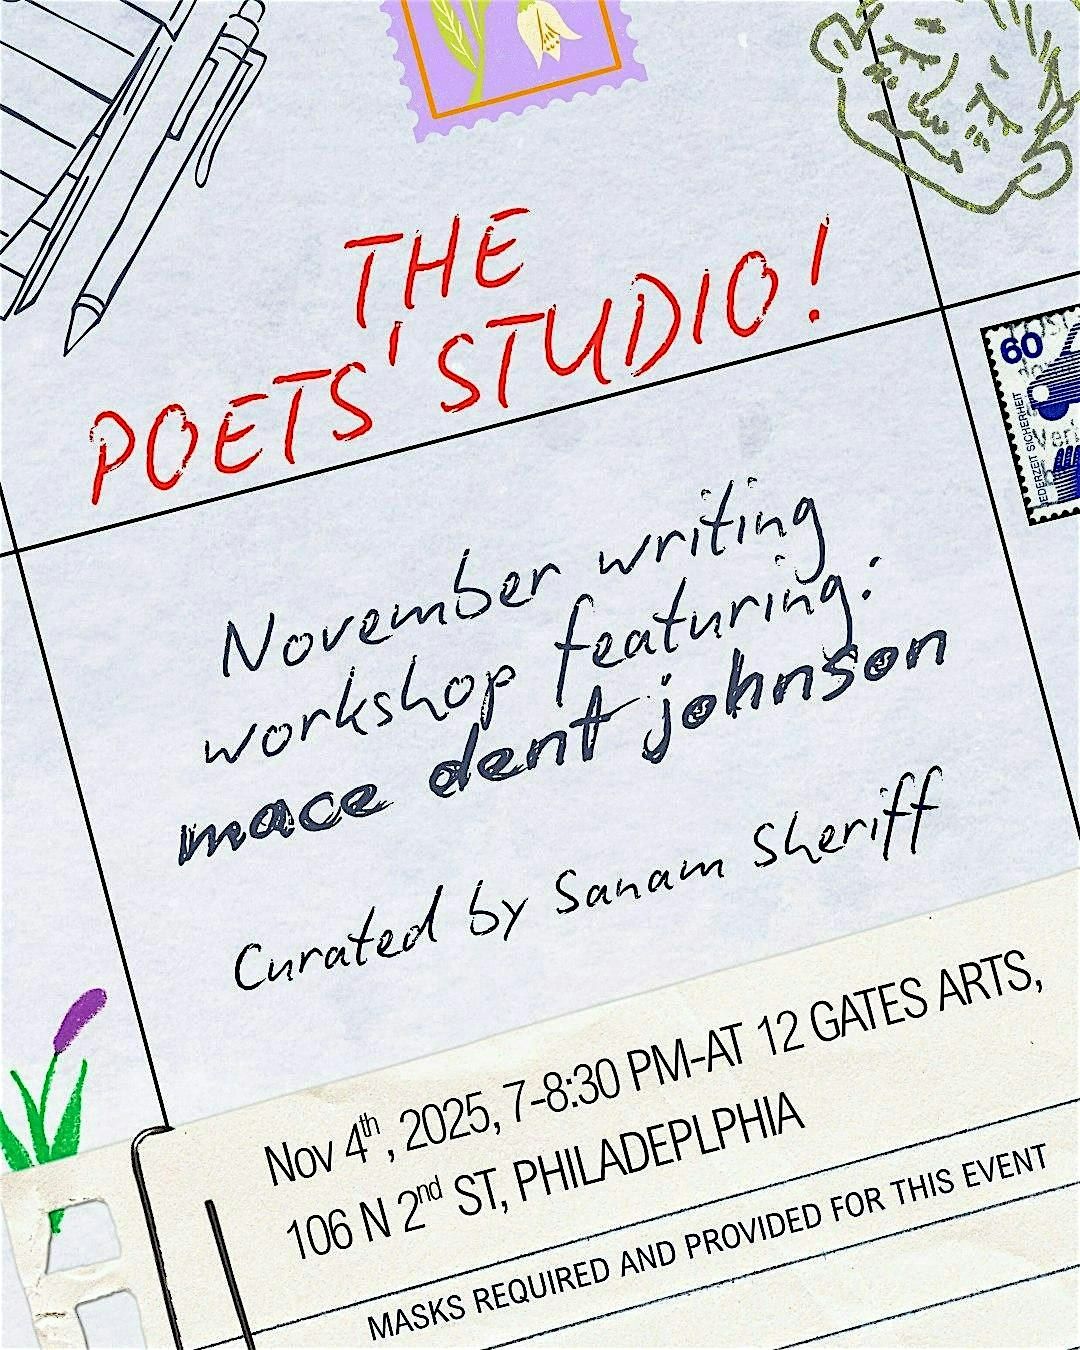 THE
POETS' STUDIO!
60
JEDERZEIT SICHERHEIT
November writing
workshop featuring:
mace dent johnson
Curated by Sanam Sheriff
Nov 4th, 2025, 7-8:30 PM-AT 12 GATES ARTS,
106 N 2nd ST, PHILADEPLPHIA
MASKS REQUIRED AND PROVIDED FOR THIS EVENT